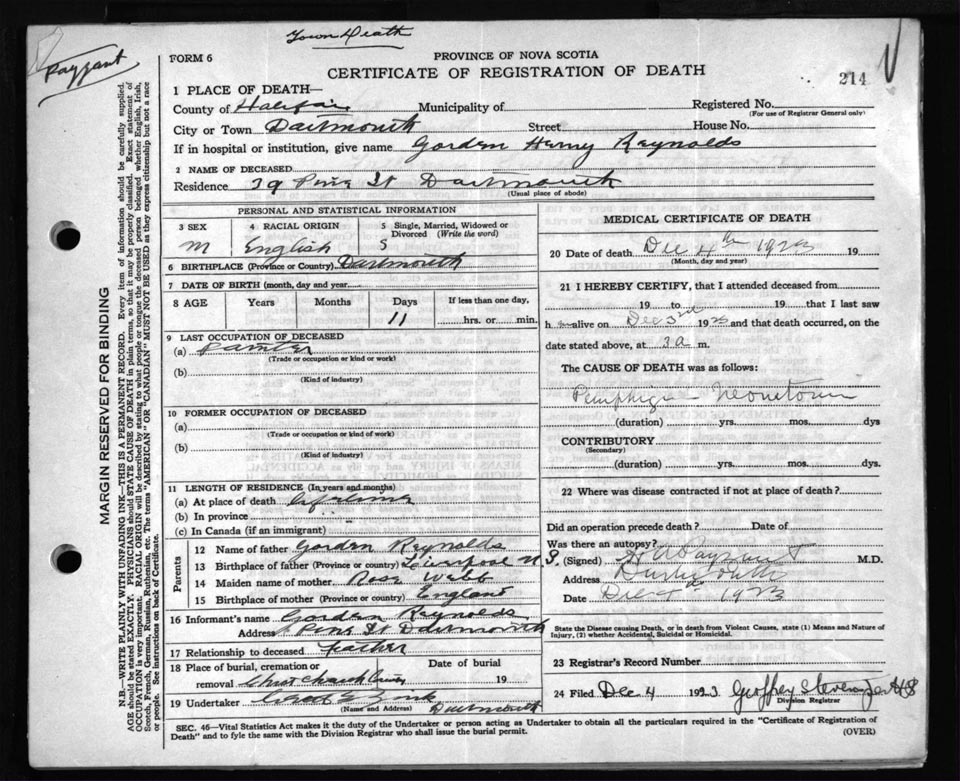 Town Death
Payzant
FORM 6
PROVINCE OF NOVA SCOTIA
CERTIFICATE OF REGISTRATION OF DEATH
214
1 PLACE OF DEATH—
County of Halifax Municipality of Registered No.
(For use of Registrar General only)
City or Town Dartmouth Street House No.
If in hospital or institution, give name Gorden Henry Reynolds
2 NAME OF DECEASED
Residence 39 Pine St Dartmouth
(Usual place of abode)
PERSONAL AND STATISTICAL INFORMATION
3 SEX 4 RACIAL ORIGIN 5 Single, Married, Widowed or Divorced (Write the word)
M English S
6 BIRTHPLACE (Province or Country) Dartmouth
7 DATE OF BIRTH (month, day and year)
8 AGE Years Months Days If less than one day,
11 hrs. or min.
9 LAST OCCUPATION OF DECEASED
(a) Painter
(Trade or occupation or kind of work)
(b)
(Kind of industry)
10 FORMER OCCUPATION OF DECEASED
(a)
(Trade or occupation or kind of work)
(b)
(Kind of industry)
11 LENGTH OF RESIDENCE (In years and months)
(a) At place of death Lifetime
(b) In province
(c) In Canada (if an immigrant)
Parents
12 Name of father Gorden Reynolds
13 Birthplace of father (Province or country) Liverpool N.S.
14 Maiden name of mother Rose Webb
15 Birthplace of mother (Province or country) England
16 Informant's name Gorden Reynolds
Address Pine St Dartmouth
17 Relationship to deceased Father
18 Place of burial, cremation or removal Christ Church Date of burial 19
19 Undertaker Dartmouth
(Name and Address)
MEDICAL CERTIFICATE OF DEATH
20 Date of death Dec 4th 1923 19
(Month, day and year)
21 I HEREBY CERTIFY, that I attended deceased from
19 to 19 that I last saw
h alive on Dec 3rd 1923 and that death occurred, on the
date stated above, at 3 a m.
The CAUSE OF DEATH was as follows:
(duration) yrs. mos. dys
CONTRIBUTORY
(Secondary)
(duration) yrs. mos. dys.
22 Where was disease contracted if not at place of death?
Did an operation precede death? Date of
Was there an autopsy?
(Signed) Payzant M.D.
Address Dartmouth
Date Dec 4th 1923
State the Disease causing Death, or in death from Violent Causes, state (1) Means and Nature of Injury, (2) whether Accidental, Suicidal or Homicidal.
23 Registrar's Record Number
24 Filed Dec 4 1923 Geoffrey Stevens
Division Registrar
SEC. 46—Vital Statistics Act makes it the duty of the Undertaker or person acting as Undertaker to obtain all the particulars required in the "Certificate of Registration of
Death" and to fyle the same with the Division Registrar who shall issue the burial permit. (OVER)
MARGIN RESERVED FOR BINDING
N.B.—WRITE PLAINLY WITH UNFADING INK—THIS IS A PERMANENT RECORD. Every item of information should be carefully supplied.
AGE should be stated EXACTLY. PHYSICIANS should STATE CAUSE OF DEATH in plain terms, so that it may be properly classified. Exact statement of
OCCUPATION is very important. RACIAL ORIGIN will be described by stating to what people or tongue the deceased person belonged whether English, Irish,
Scotch, French, German, Russian, Ruthenian, etc. The terms "AMERICAN" OR "CANADIAN" MUST NOT BE USED as they express citizenship but not a race
or people. See instructions on back of Certificate.